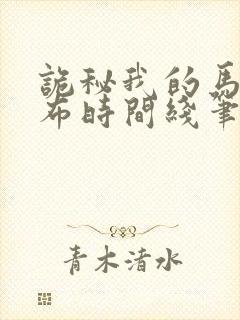 詭秘我的馬
布時間綫筆
青木渚水